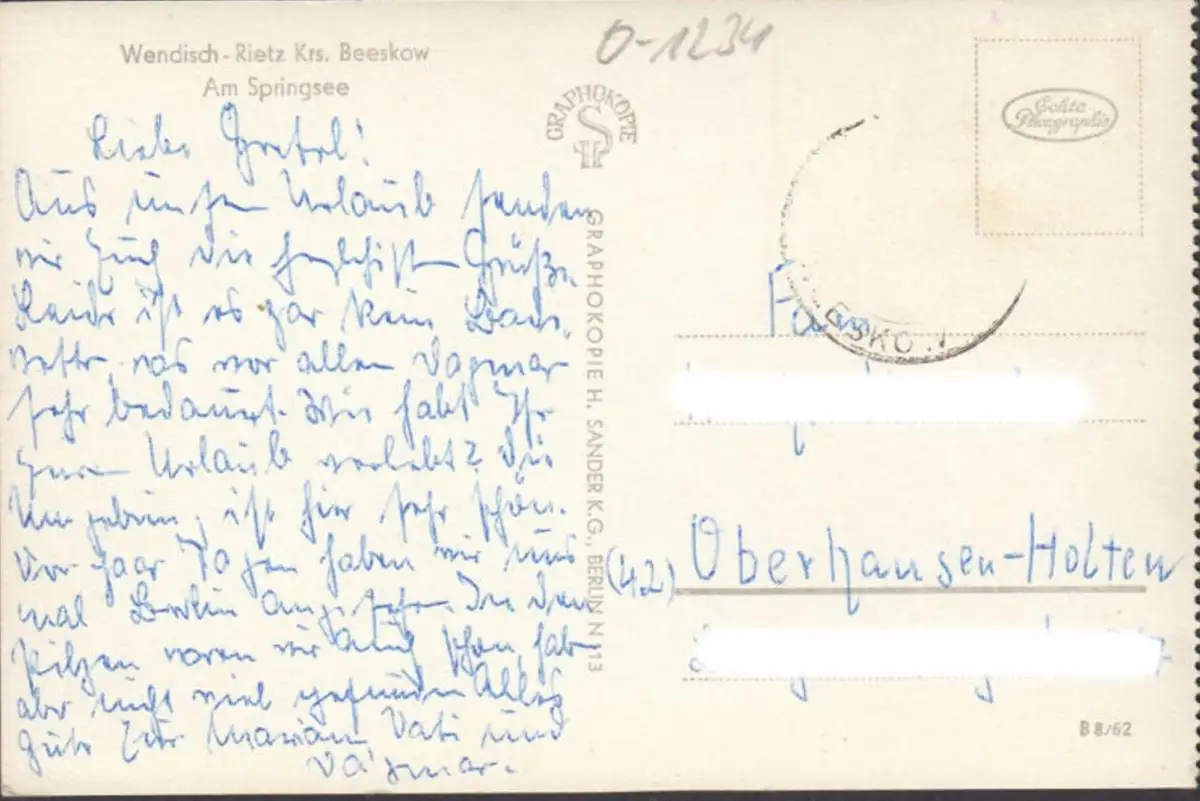 Wendisch-Rietz Krs. Beeskow
Am Springsee
O-1234
GRAPHOKOPIE
H S
Echte
Photographie
Liebe Gretel!
Aus unsern Urlaub senden
wir Euch die herzlichsten Grüße.
Leider ist es gar kein Bade-
wetter, was vor allen Dagmar
sehr bedauert. Wie habt Ihr
Euren Urlaub verlebt? Die
Umgebung ist hier sehr schön.
Vor paar Tagen haben wir uns
mal Berlin angesehn. In den
Pilzen waren wir auch schon, hab
aber nicht viel gefunden. Alles
Gute Eure Mariann, Vati und
Dagmar.
GRAPHOKOPIE H. SANDER K.G., BERLIN N 113
ESKO
Frau
(42) Oberhausen-Holten
B 8/62